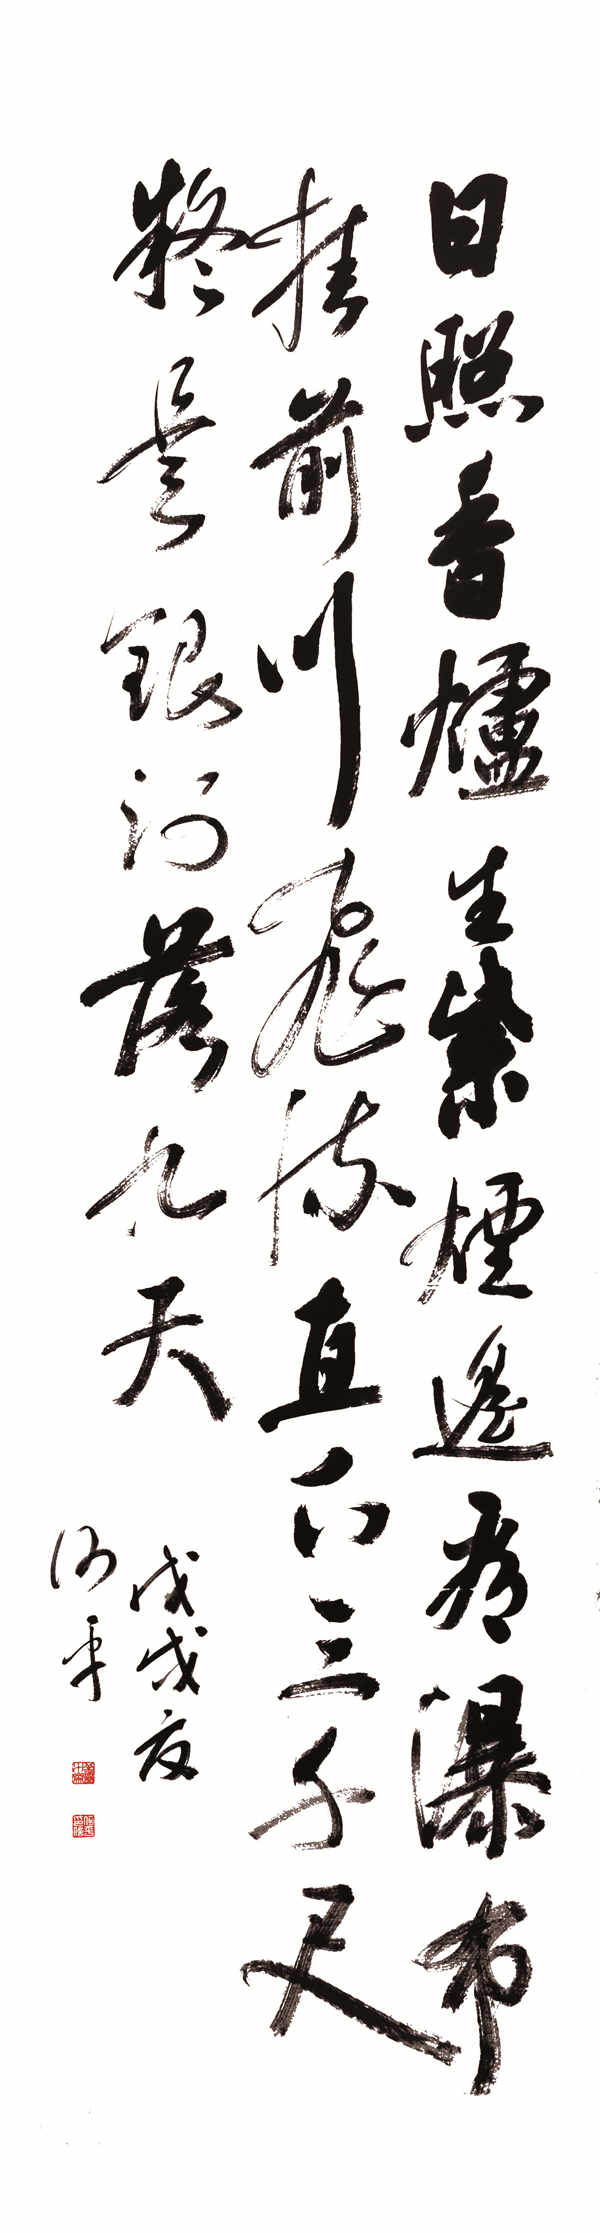 日照香爐生紫煙遙看瀑布
挂前川飛流直下三千尺
疑是銀河落九天
戊戌夏
平